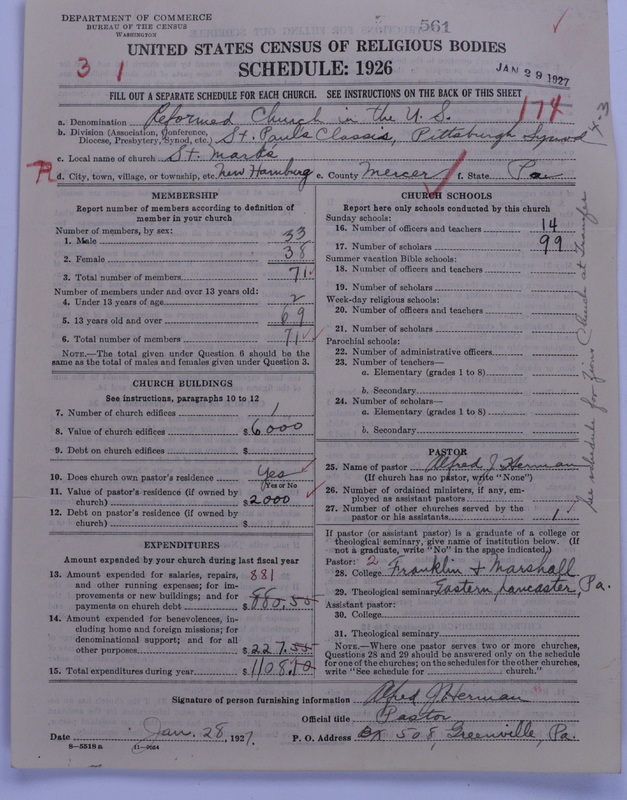 DEPARTMENT OF COMMERCE
BUREAU OF THE CENSUS
WASHINGTON
561
UNITED STATES CENSUS OF RELIGIOUS BODIES
SCHEDULE: 1926
3 1
JAN 29 1927
FILL OUT A SEPARATE SCHEDULE FOR EACH CHURCH. SEE INSTRUCTIONS ON THE BACK OF THIS SHEET
174
a. Denomination Reformed Church in the U.S.
b. Division (Association, Conference, Diocese, Presbytery, Synod, etc.) St. Pauls Classis, Pittsburgh Synod
c. Local name of church St. Marks
R d. City, town, village, or township, etc. New Hamburg e. County Mercer f. State Pa
MEMBERSHIP
Report number of members according to definition of
member in your church
Number of members, by sex:
1. Male 33
2. Female 38
3. Total number of members 71
Number of members under and over 13 years old:
4. Under 13 years of age 2
5. 13 years old and over 69
6. Total number of members 71
NOTE.—The total given under Question 6 should be the
same as the total of males and females given under Question 3.
CHURCH BUILDINGS
See instructions, paragraphs 10 to 12
7. Number of church edifices 1
8. Value of church edifices $6000
9. Debt on church edifices $
10. Does church own pastor's residence Yes
(Yes or No)
11. Value of pastor's residence (if owned by
church) $2000
12. Debt on pastor's residence (if owned by
church) $
EXPENDITURES
Amount expended by your church during last fiscal year
13. Amount expended for salaries, repairs, 881
and other running expenses; for im-
provements or new buildings; and for
payments on church debt $880.50
14. Amount expended for benevolences, in-
cluding home and foreign missions; for
denominational support; and for all
other purposes $227.55
15. Total expenditures during year $1108
CHURCH SCHOOLS
Report here only schools conducted by this church
Sunday schools:
16. Number of officers and teachers 14
17. Number of scholars 99
Summer vacation Bible schools:
18. Number of officers and teachers
19. Number of scholars
Week-day religious schools:
20. Number of officers and teachers
21. Number of scholars
Parochial schools:
22. Number of administrative officers
23. Number of teachers—
a. Elementary (grades 1 to 8)
b. Secondary
24. Number of scholars—
a. Elementary (grades 1 to 8)
b. Secondary
PASTOR
25. Name of pastor Alfred J. Herman
(If church has no pastor, write "None")
26. Number of ordained ministers, if any, em-
ployed as assistant pastors
27. Number of other churches served by the
pastor or his assistants 1
If pastor (or assistant pastor) is a graduate of a college or
theological seminary, give name of institution below. (If
not a graduate, write "No" in the space indicated.)
Pastor: 2
28. College Franklin & Marshall
29. Theological seminary Eastern, Lancaster, Pa.
Assistant pastor:
30. College
31. Theological seminary
NOTE.—Where one pastor serves two or more churches,
Questions 28 and 29 should be answered only on the schedule
for one of the churches; on the schedules for the other churches,
write "See schedule for church."
See schedule for Zions Church at
Signature of person furnishing information Alfred J. Herman
Official title Pastor
Date Jan. 28, 1927. P. O. Address Bx 508, Greenville, Pa.
8—5518 a 11—9054